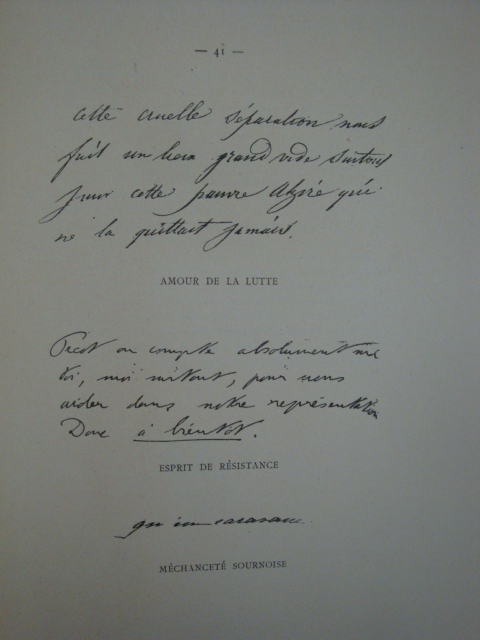 — 41 —
cette cruelle séparation nous
fait un bien grand vide surtout
pour cette pauvre Alziré qui
ne la quittait jamais.
AMOUR DE LA LUTTE
Picot on compte absolument sur
toi, moi surtout, pour nous
aider dans notre représentation
Donc à bientôt.
ESPRIT DE RÉSISTANCE
MÉCHANCETÉ SOURNOISE